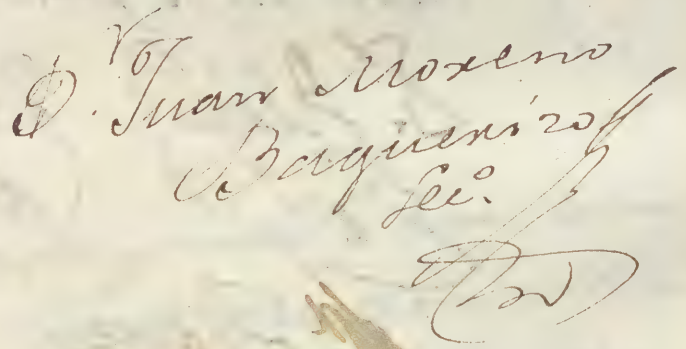 D. Juan Moreno
Baquerizo
Sec.º